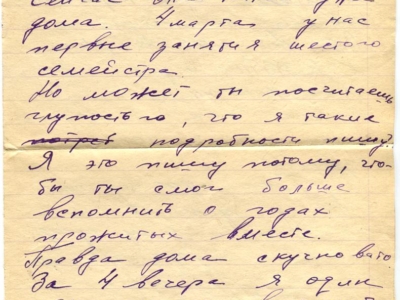 сейчас
дома. 4 марта у нас
первые занятия шестого
семейстра.
Но может ты посчитаешь
глупостью, что я такие
подробности пишу.
Я это пишу потому, что-
бы ты смог больше
вспомнить о годах
прожитых вместе.
Правда дома скучновато
За 4 вечера я один